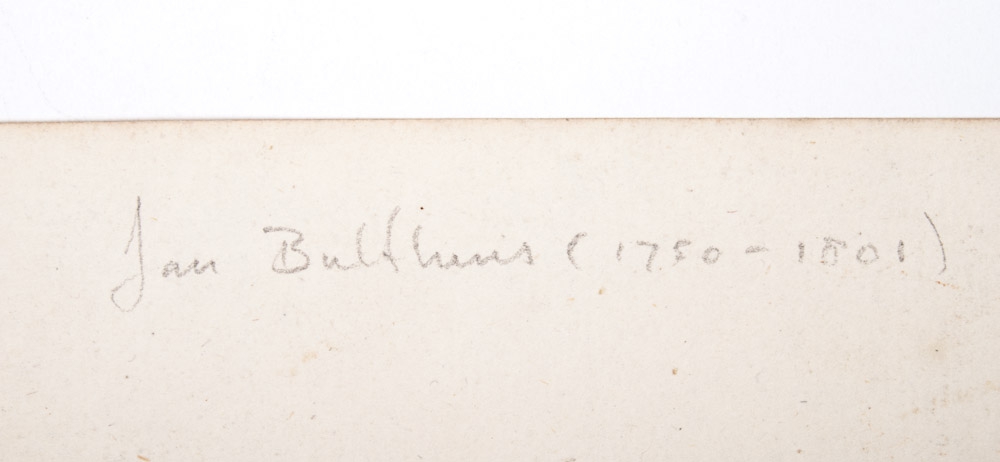 Jan Bulthuis (1750 - 1801)